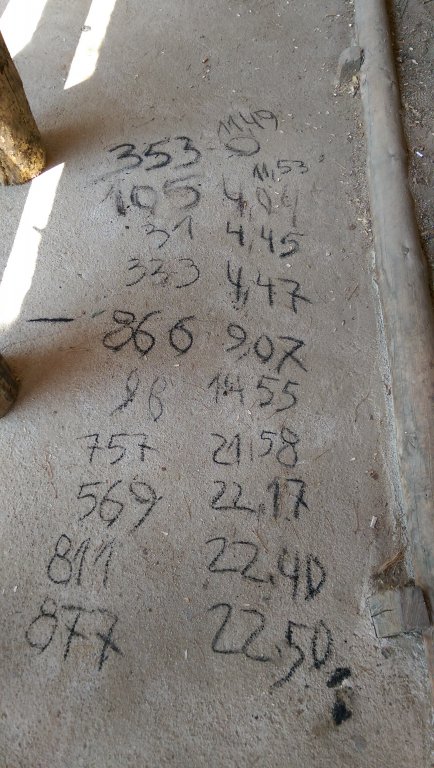 11,49
353 0
11,53
105 4,04
31 4,45
333 4,47
866 9,07
98 14,55
757 21,58
569 22,17
811 22,40
877 22,50